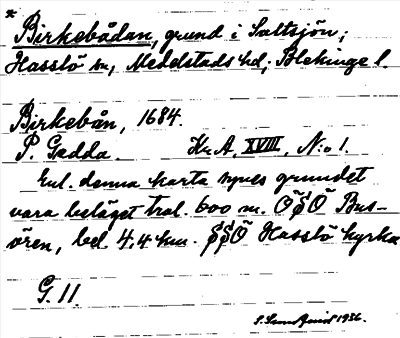 * Birkebådan, grund i Saltsjön;
Hasslö sn, Medelstads hd; Blekinge l.
Birkebån, 1684.
P. Gedda. Kr.A. XVIII, N:o 1.
Enl. denna karta synes grundet
vara beläget trol. 600 m. OSO Bus-
ören, bel. 4,4 km. SSO Hasslö kyrka
G. 11.
S. Sundquist 1936.